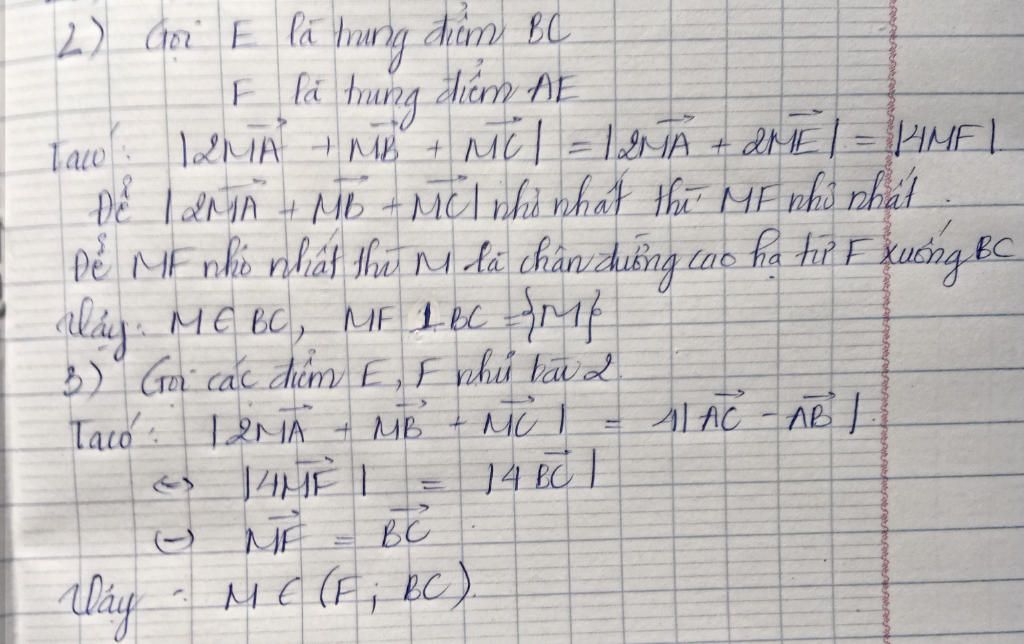 2) Gọi E là trung điểm BC
F là trung điểm AE
Ta có: |2\overrightarrow{MA} + \overrightarrow{MB} + \overrightarrow{MC}| = |2\overrightarrow{MA} + 2\overrightarrow{ME}| = |4MF|.
Để |2\overrightarrow{MA} + \overrightarrow{MB} + \overrightarrow{MC}| nhỏ nhất thì MF nhỏ nhất.
Để MF nhỏ nhất thì M là chân đường cao hạ từ F xuống BC
Vậy: M ∈ BC, MF ⊥ BC = {M}
3) Gọi các điểm E, F như bài 2.
Ta có: |2\overrightarrow{MA} + \overrightarrow{MB} + \overrightarrow{MC}| = 4|\overrightarrow{AC} - \overrightarrow{AB}|.
⇔ |4\overrightarrow{MF}| = |4\overrightarrow{BC}|
⇔ \overrightarrow{MF} = \overrightarrow{BC}
Vậy: M ∈ (F; BC).